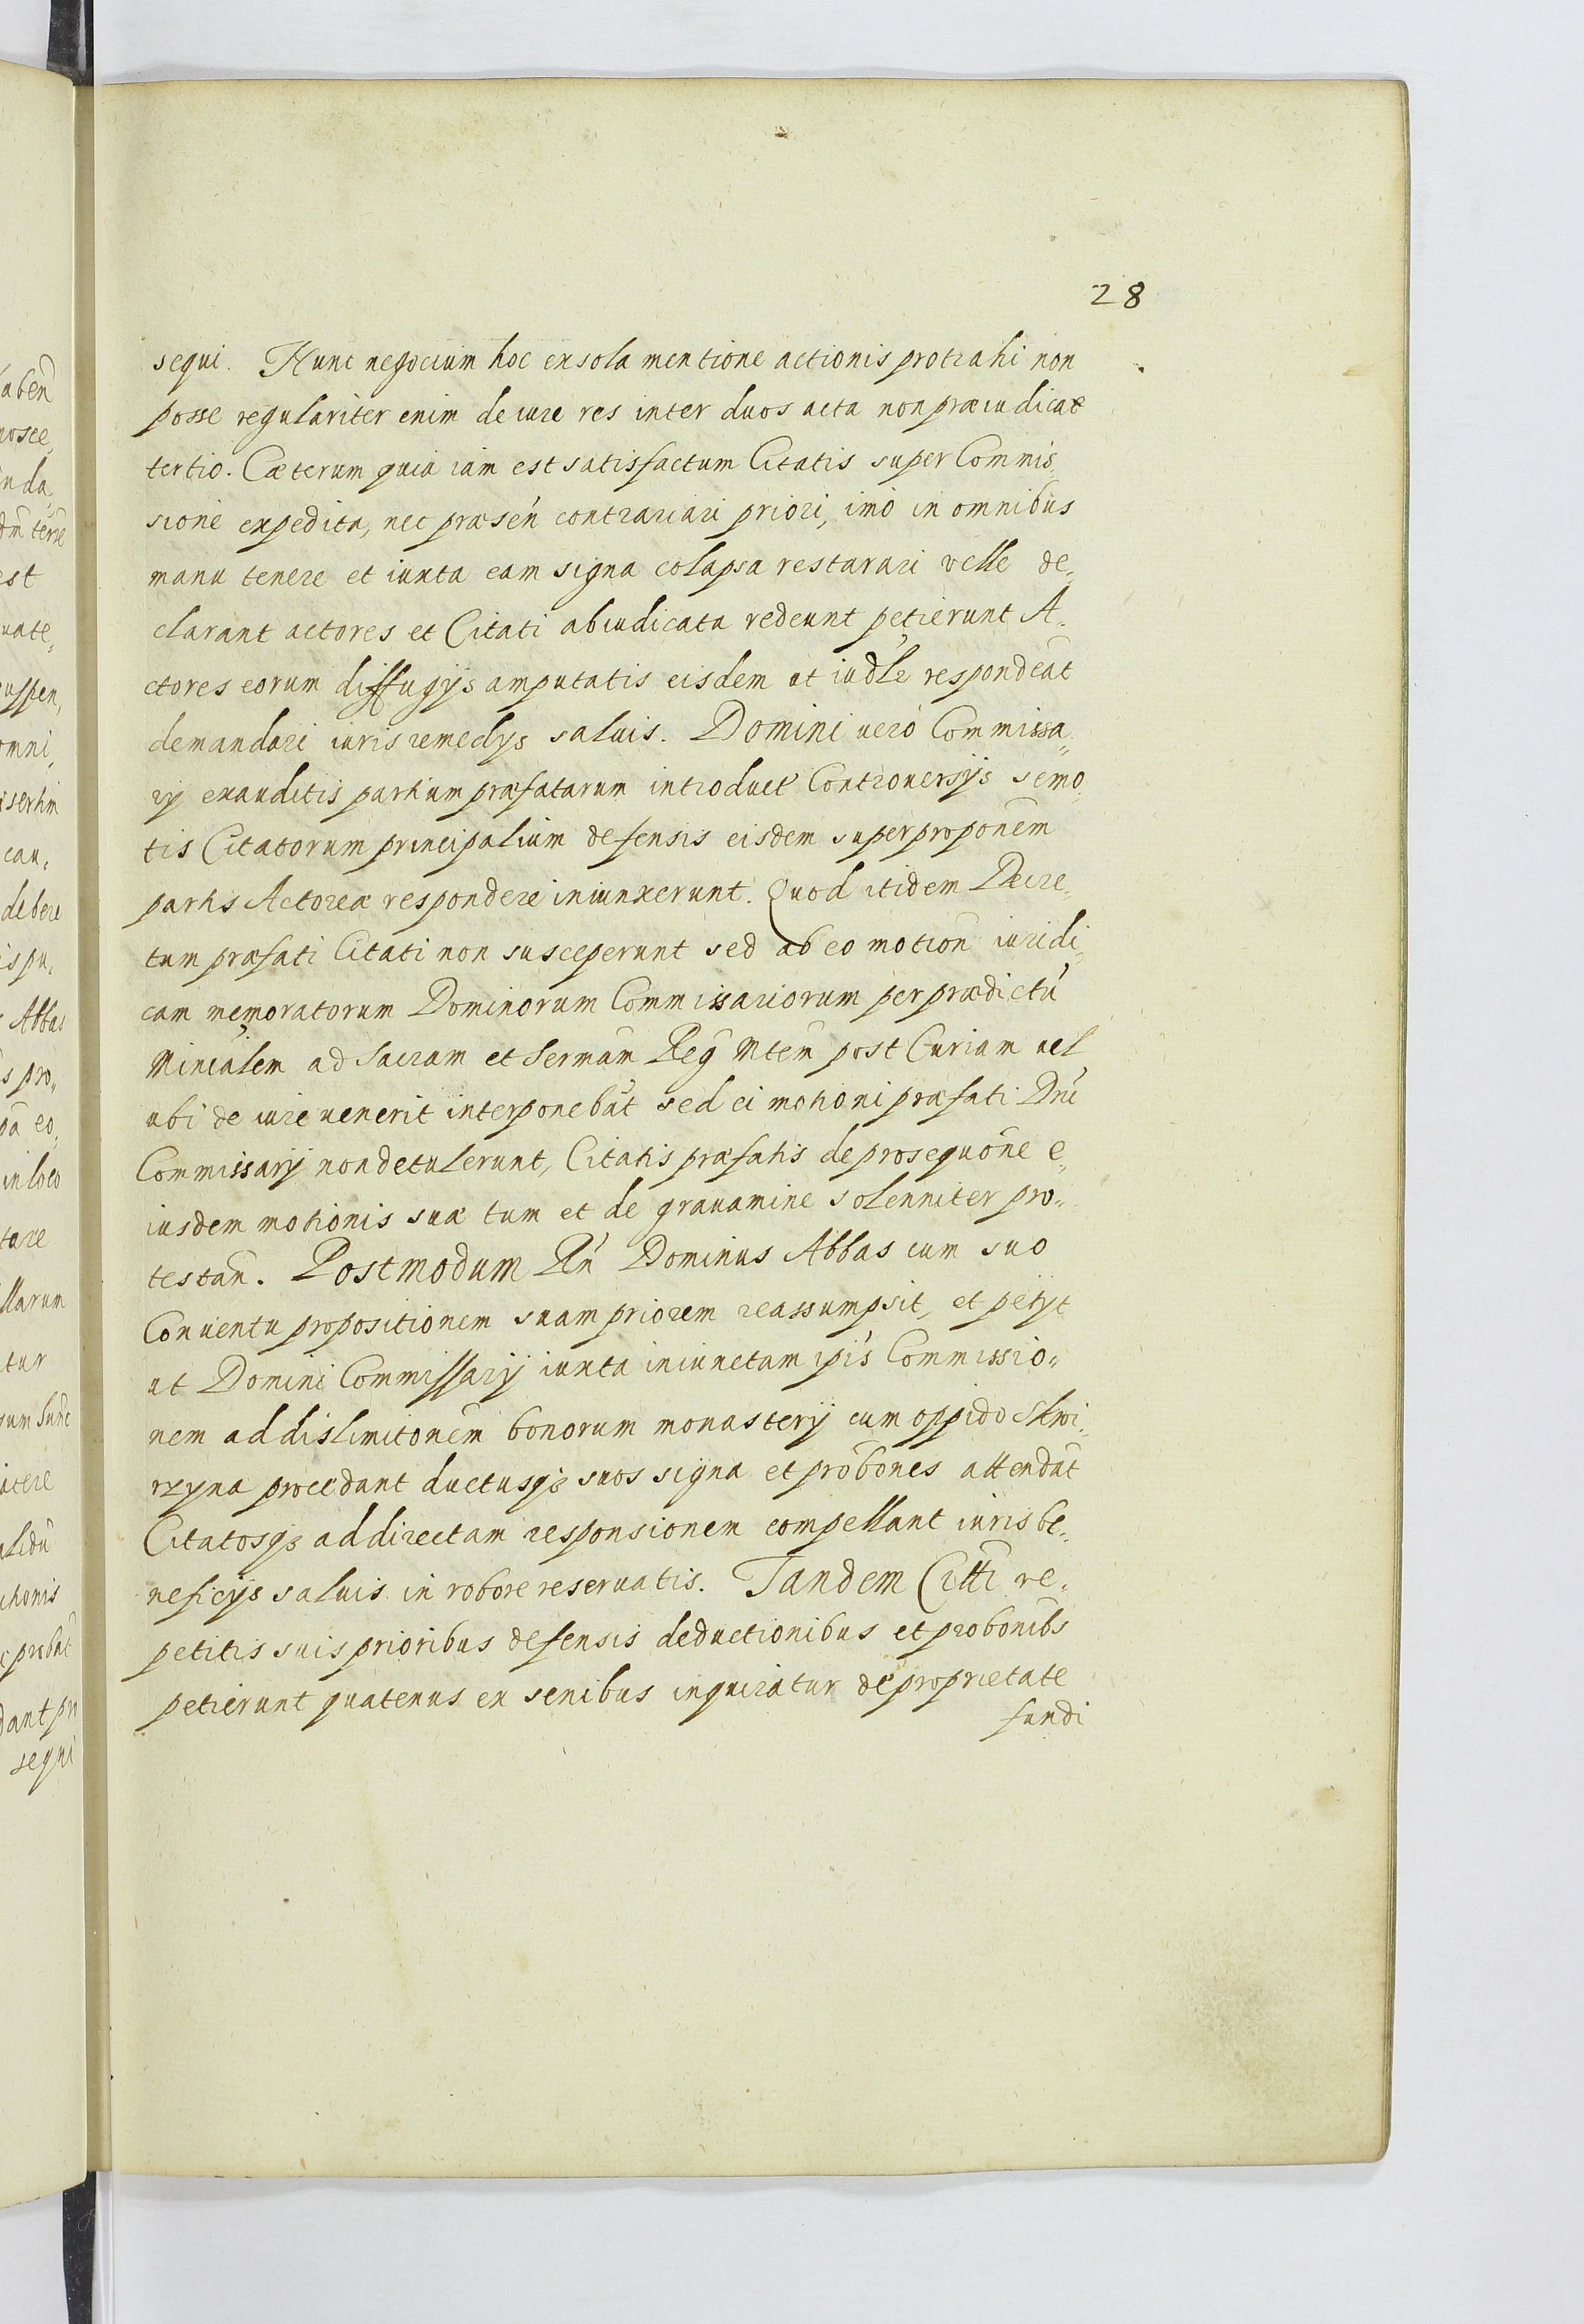 28
sequi. Hunc negocium hoc ex sola mentione actionis protrahi non
posse regulariter enim de iure res inter duos acta non præiudicat
tertio. Cæterum quia iam est satisfactum Citatis super Commis,
sione expedita, nec præsen̄ contrariari priori, imo in omnibus
manu tenere et iuxta eam signa colapsa restarari velle de,
clarant actores et Citati abiudicata redeunt petierunt A,
ctores eorum diffugijs amputatis eisdem ut iudl̄r respondeāt
demandari iuris remedys saluis. Domini uero Commissa,,
ry exauditis partium præfatarum introduct̄ Controuersijs semo,
tis Citatorum principalium defensis eisdem super proponēm
partis Actoreæ respondere iniunxerunt. Quod itidem Decre,
tum præfati Citati non susceperunt sed ab eo motion̄ iuridi,
cam memoratorum Dominorum Commissariorum per prædictū
Minīalem ad Sacram et Sermām Reg̅ Mtem̄ post Curiam uel
ubi de iure uenerit interponebāt sed ei motioni præfati Dn̄i
Commissarij non detulerunt, Citatis præfatis de prosequōne e,
iusdem motionis suæ tum et de grauamine solenniter pro,,
testan̄. Postmodum Rn̄ Dominus Abbas cum suo
Conuentu propositionem suam priorem reassumpsit, et petijt
ut Domini Commissarij iuxta iniunctam ip̄is Commissio,,
nem ad dislimitōnem bonorum monasterij cum oppido Skwi,
rzyna procedant ductusq̢ suos signa et probōnes attendāt
Citatosq̢ ad directam responsionem compellant iuris be,
neficijs saluis in robore reseruatis. Tandem Citt̄i re,
petitis suis prioribus defensis deductionibus et probōnibs
petierunt quatenus ex senibus inquiratur de proprietate
fundi